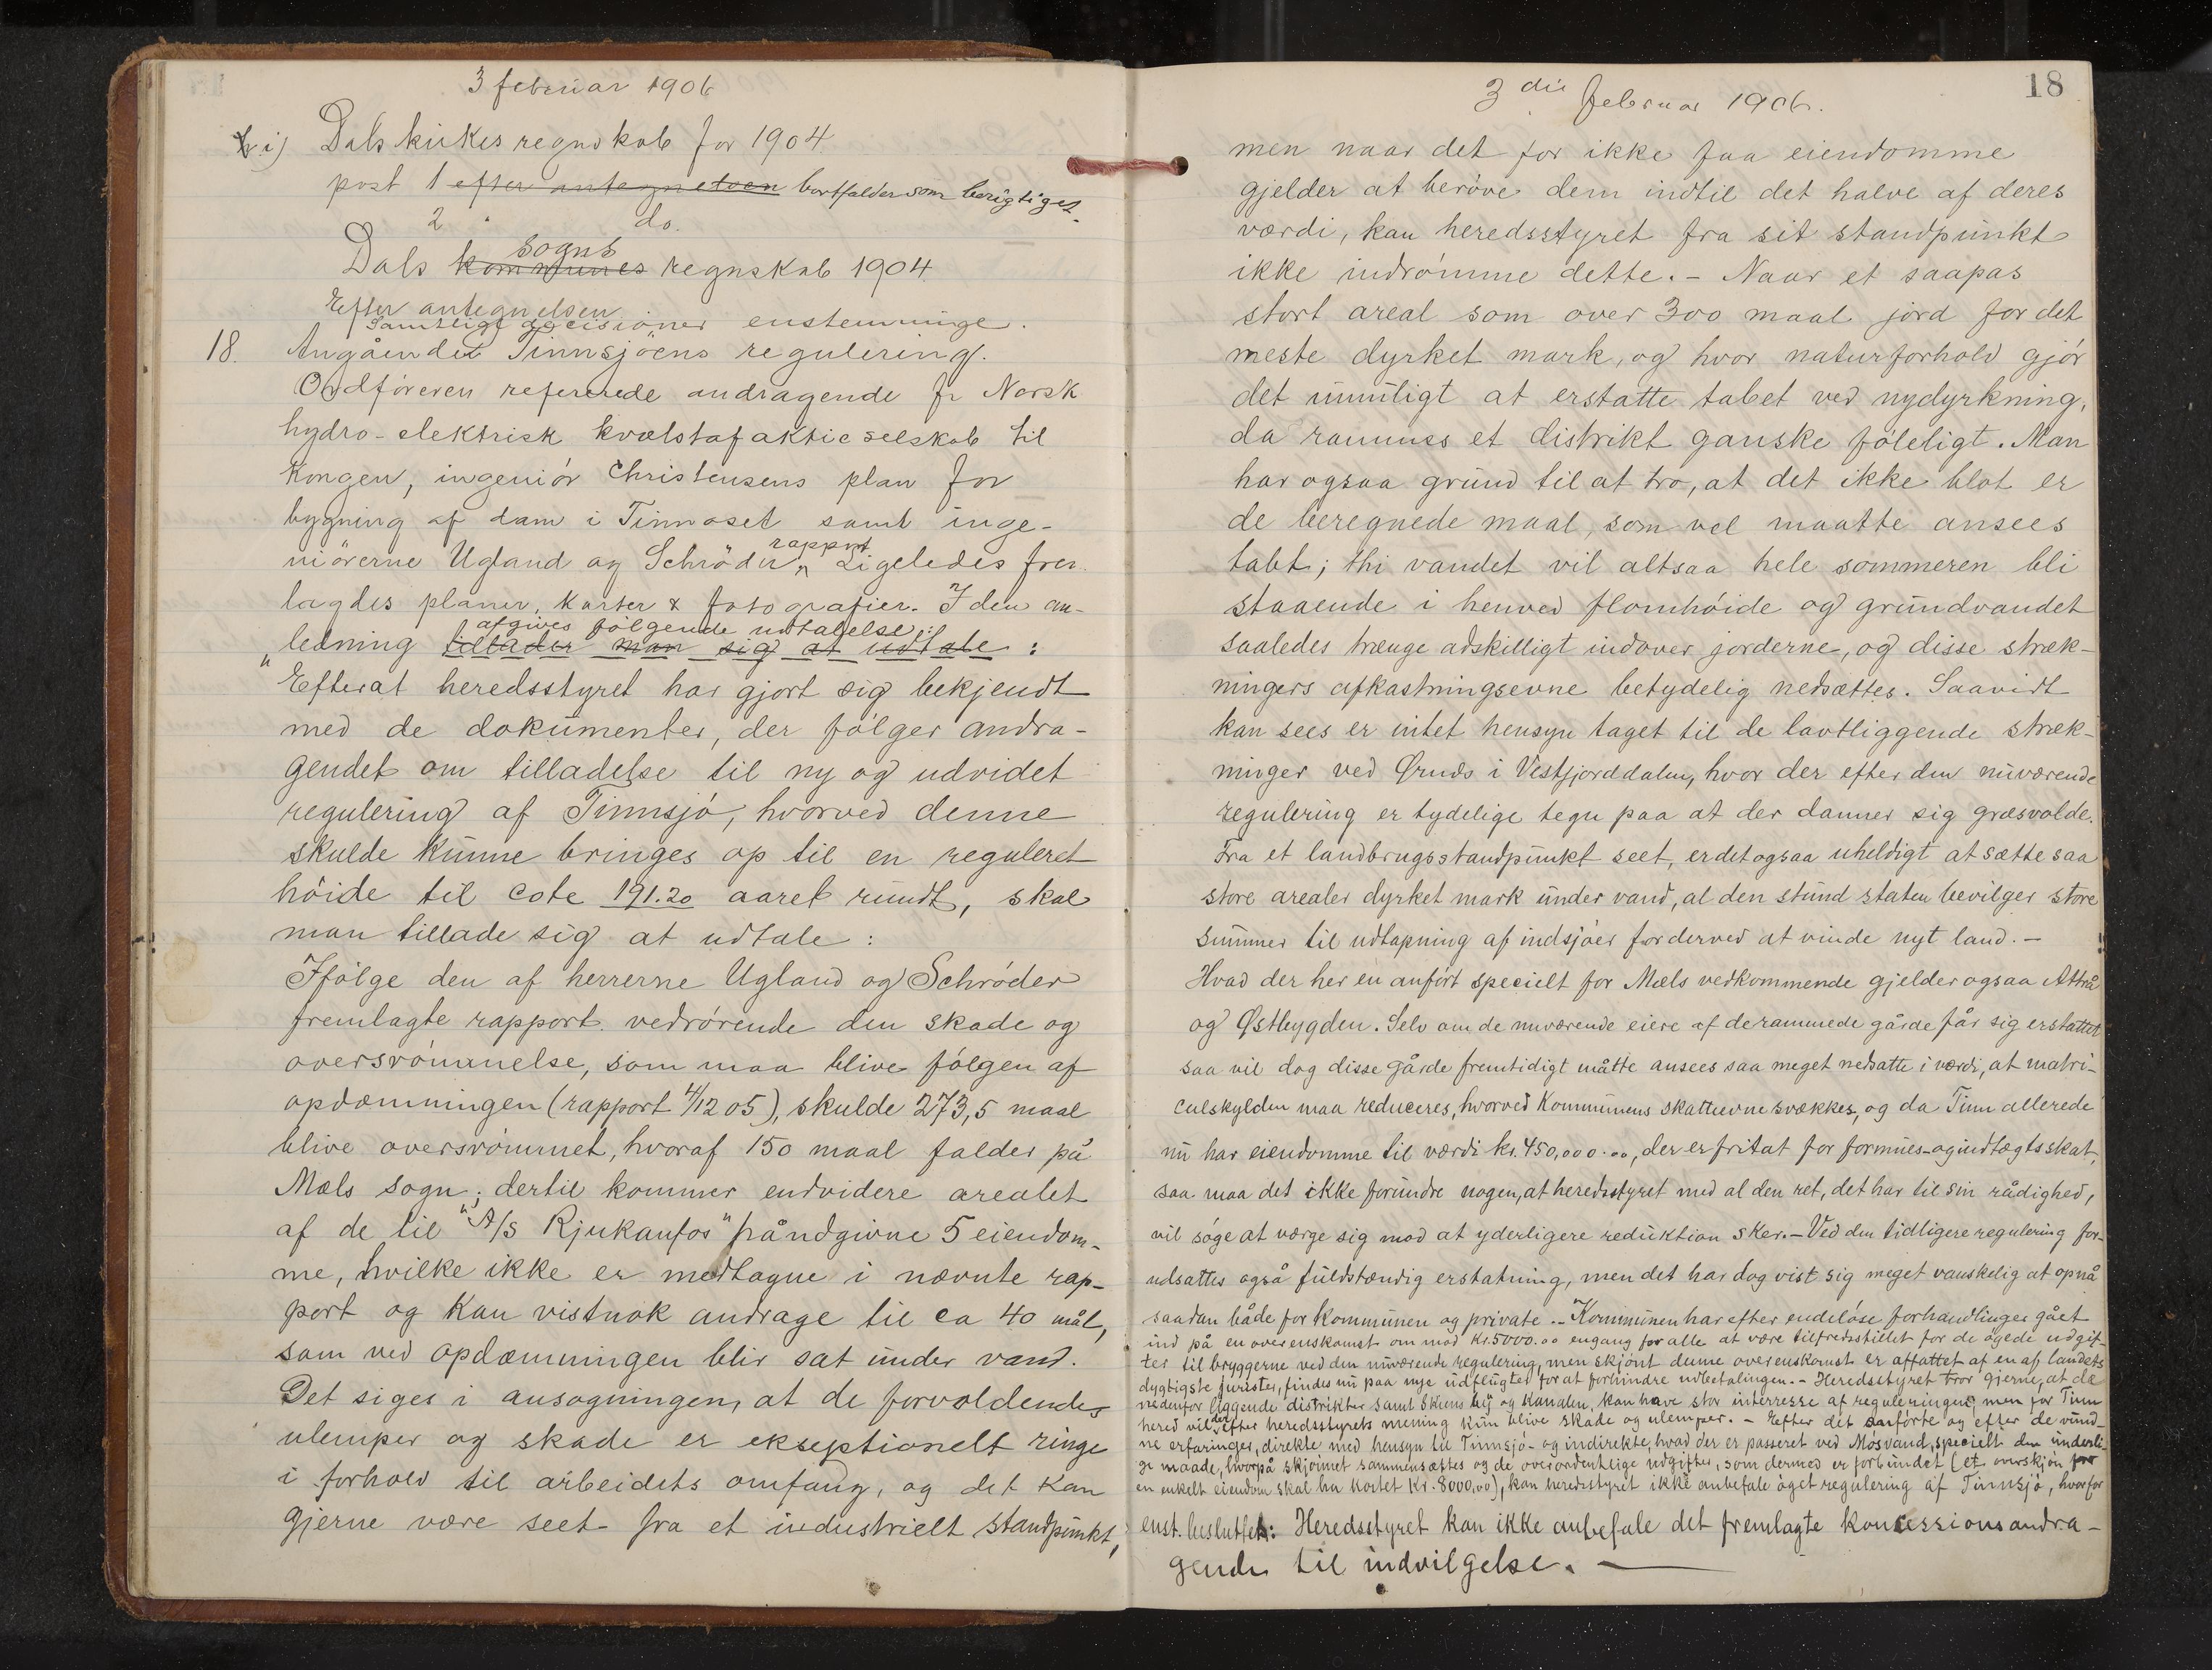 3 februar 1906
i) Dals kirkes regnskab for 1904
post 1 efter antegnelsen bortfalder som berigtiget.
2 " do.
sogns
Dals kommunes regnskab 1904.
Efter antegnelsen
Samtlige decisioner enstemmige.
18. Angående Tinnsjöens regulering.
Ordføreren refererede andragende fr Norsk
hydro-elektrisk kvælstofaktieselskab til
Kongen, ingeniör Christensens plan for
bygning af dam i Tinnoset samt inge-
rapport
niörerne Ugland og Schröder, Ligeledes frem
lagdes planer, karter & fotografier. I den an-
afgives fölgende udtalelse:
ledning tillader man sig at udtale :
"Efterat heredsstyret har gjort sig bekjendt
med de dokumenter, der fölger andra-
gendet om tilladelse til ny og udvidet
regulering af Tinnsjö, hvorved denne
skulde kunne bringes op til en reguleret
höide til cote 191.20 aaret rundt, skal
man tillade sig at udtale :
Ifölge den af herrerne Ugland og Schröder
fremlagte rapport vedrörende den skade og
oversvömmelse, som maa blive fölgen af
opdæmningen (rapport 4/12 05), skulde 273,5 maal
blive oversvömmet, hvoraf 150 maal falder på
Mæls sogn; dertil kommer endvidere arealet
af de til "A/S Rjukanfos" håndgivne 5 eiendom-
me, hvilke ikke er medtagne i nævnte rap-
port og kan vistnok andrage til ca 40 mål,
som ved opdæmningen blir sat under vand.
Det siges i ansögningen, at de forvoldendes
ulemper og skade er ekseptionelt ringe
i forhold til arbeidets omfang, og det kan
gjerne være seet fra et industrielt standpunkt,
18
3 die februar 1906.
men naar det for ikke faa eiendomme
gjelder at beröve dem indtil det halve af deres
værdi, kan heredsstyret fra sit standpunkt
ikke indrömme dette. - Naar et saapas
stort areal som over 300 maal jord for det
meste dyrket mark, og hvor naturforhold gjör
det umuligt at erstatte tabet ved nydyrkning,
da rammes et distrikt ganske föleligt. Man
har ogsaa grund til at tro, at det ikke blot er
de beregnede maal, som vel maatte ansees
tabt; thi vandet vil altsaa hele sommeren bli
staaende i henved flomhöide og grundvandet
saaledes trænge adskilligt indover jorderne, og disse stræk-
ningers afkastningsevne betydelig nedsættes. Saavidt
kan sees er intet hensyn taget til de lavtliggende stræk-
ninger ved Ørnes i Vestfjorddalen, hvor der efter den nuværende
regulering er tydelige tegn paa at der danner sig græsvolde.
Fra et landbrugsstandpunkt seet, er det ogsaa uheldigt at sætte saa
store arealer dyrket mark under vand, al den stund staten bevilger store
summer til udtapning af indsjöer for derved at vinde nyt land. -
Hvad der her en anfört specielt for Mæls vedkommende gjelder ogsaa Attrå
og Østbygden. Selv om de nuværende eiere af de rammede gårde får sig erstattet
saa vil dog disse gårde fremtidigt måtte ansees saa meget nedsatte i værdi, at matri-
culskylden maa reduceres, hvorved Kommunens skatteevne svækkes, og da Tinn allerede
nu har eiendomme til værdi kr. 450,000.00, der er fritat for formues- og indtægtsskat,
saa maa det ikke forundre nogen, at heredsstyret med al den ret, det har til sin rådighed,
vil söge at værge sig mod at yderligere reduktion sker. - Ved den tidligere regulering for-
udsattes også fuldstændig erstatning, men det har dog vist sig meget vanskelig at opnå
saadan både for Kommunen og private. - Kommunen har efter endelöse forhandlinger gået
ind på en overenskomst om mod Kr. 5000.00 engang for alle at være tilfredsstillet for de ögede udgif-
ter til bryggerne ved den nuværende regulering, men skjönt denne overenskomst er affattet af en af landets
dygtigste jurister, findes nu paa nye udflugter for at forhindre udbetalingen. - Heredsstyret tror gjerne, at de
nedenfor liggende distrikter samt Skiens by og Kanalen, kan have stor interresse af reguleringen, men for Tinn
hered vil der efter heredsstyrets mening kun blive skade og ulemper. - Efter det anförte og efter de vund-
ne erfaringer, direkte med hensyn til Tinnsjö- og indirekte, hvad der er passeret ved Mösvand, specielt den underli-
ge maade, hvorpå skjönnet sammensættes og de overordentlige udgifter, som dermed er forbundet (et overskjön for
en enkelt eiendom skal ha kostet Kr. 8000,00), kan heredsstyret ikke anbefale öget regulering af Tinnsjö, hvorfor
enst. besluttet: Heredsstyret kan ikke anbefale det fremlagte koncessionsandra-
gende til indvilgelse. -